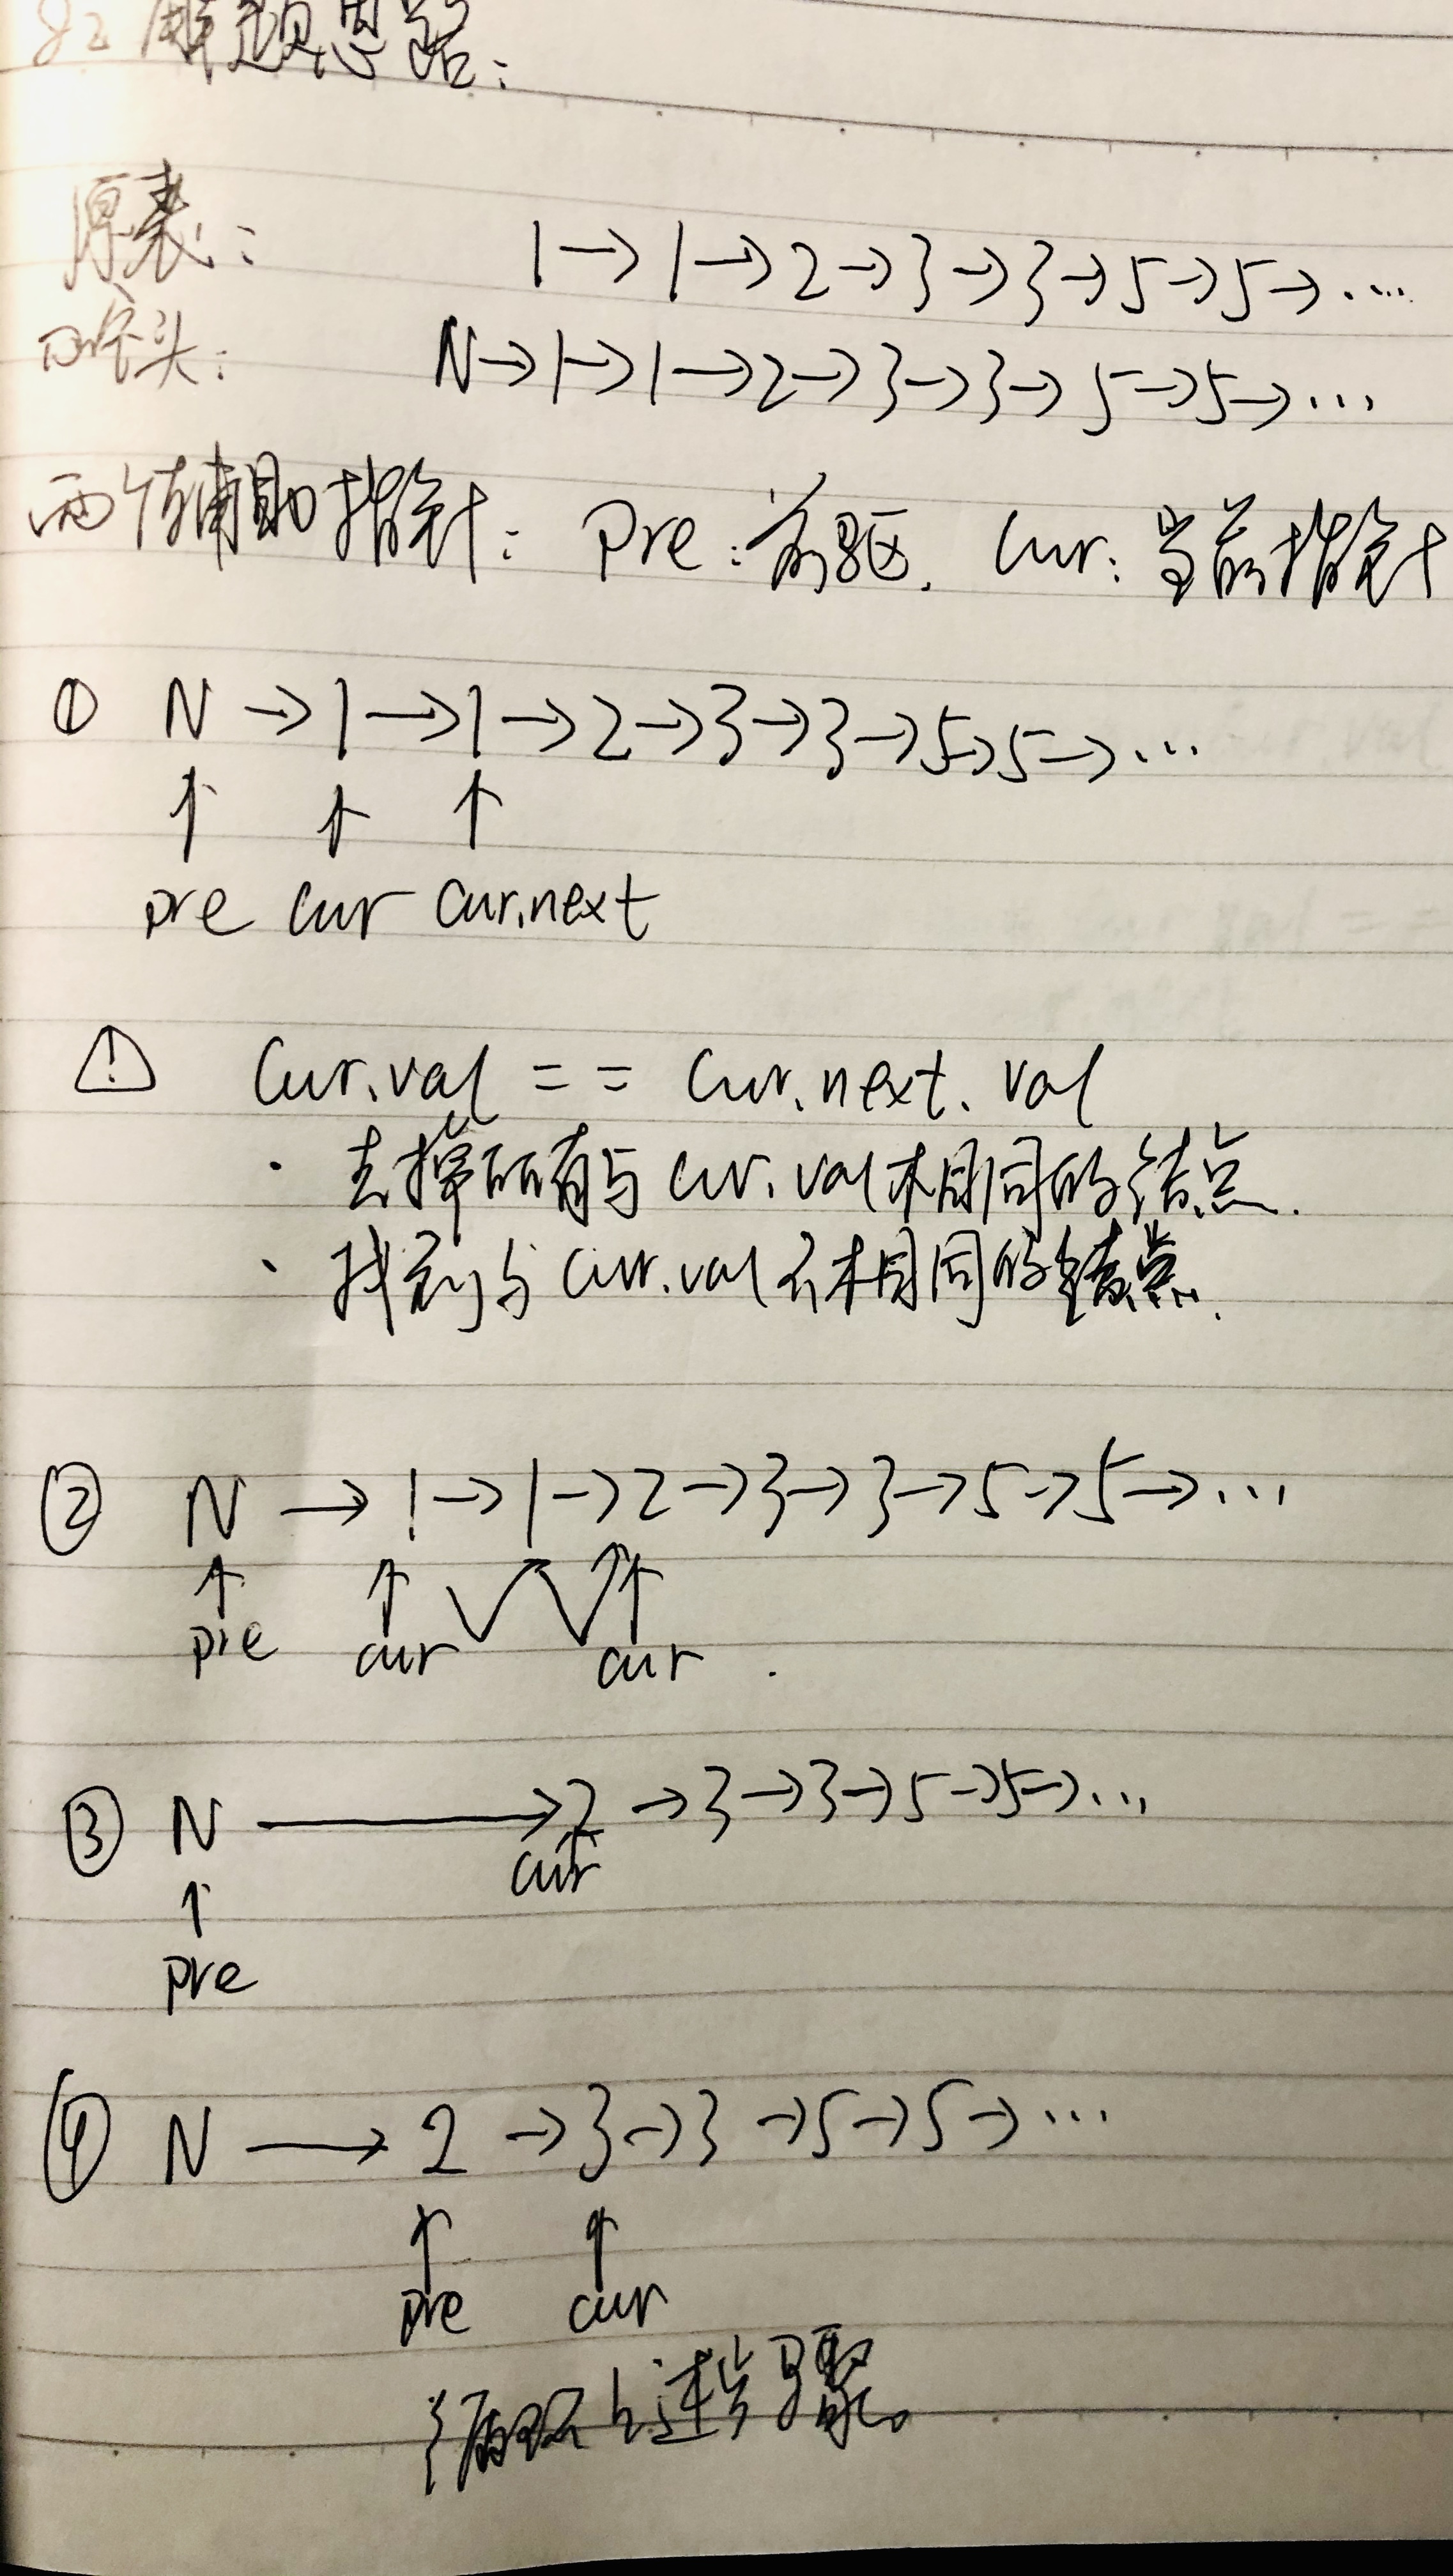 82 解题思路:
原表: 1→1→2→3→3→5→5→....
哑头: N→1→1→2→3→3→5→5→...
两个辅助指针: pre:前驱. cur:当前指针
① N→1→1→2→3→3→5→5→...
↑ ↑ ↑
pre cur cur.next
⚠ cur.val == cur.next.val
· 去掉所有与cur.val相同的结点.
· 找到与cur.val不相同的结点.
② N→1→1→2→3→3→5→5→...
↑ ↑ ↑
pre cur cur
③ N→2→3→3→5→5→...
cur
↑
pre
④ N→2→3→3→5→5→...
↑ ↑
pre cur
循环上述步骤。